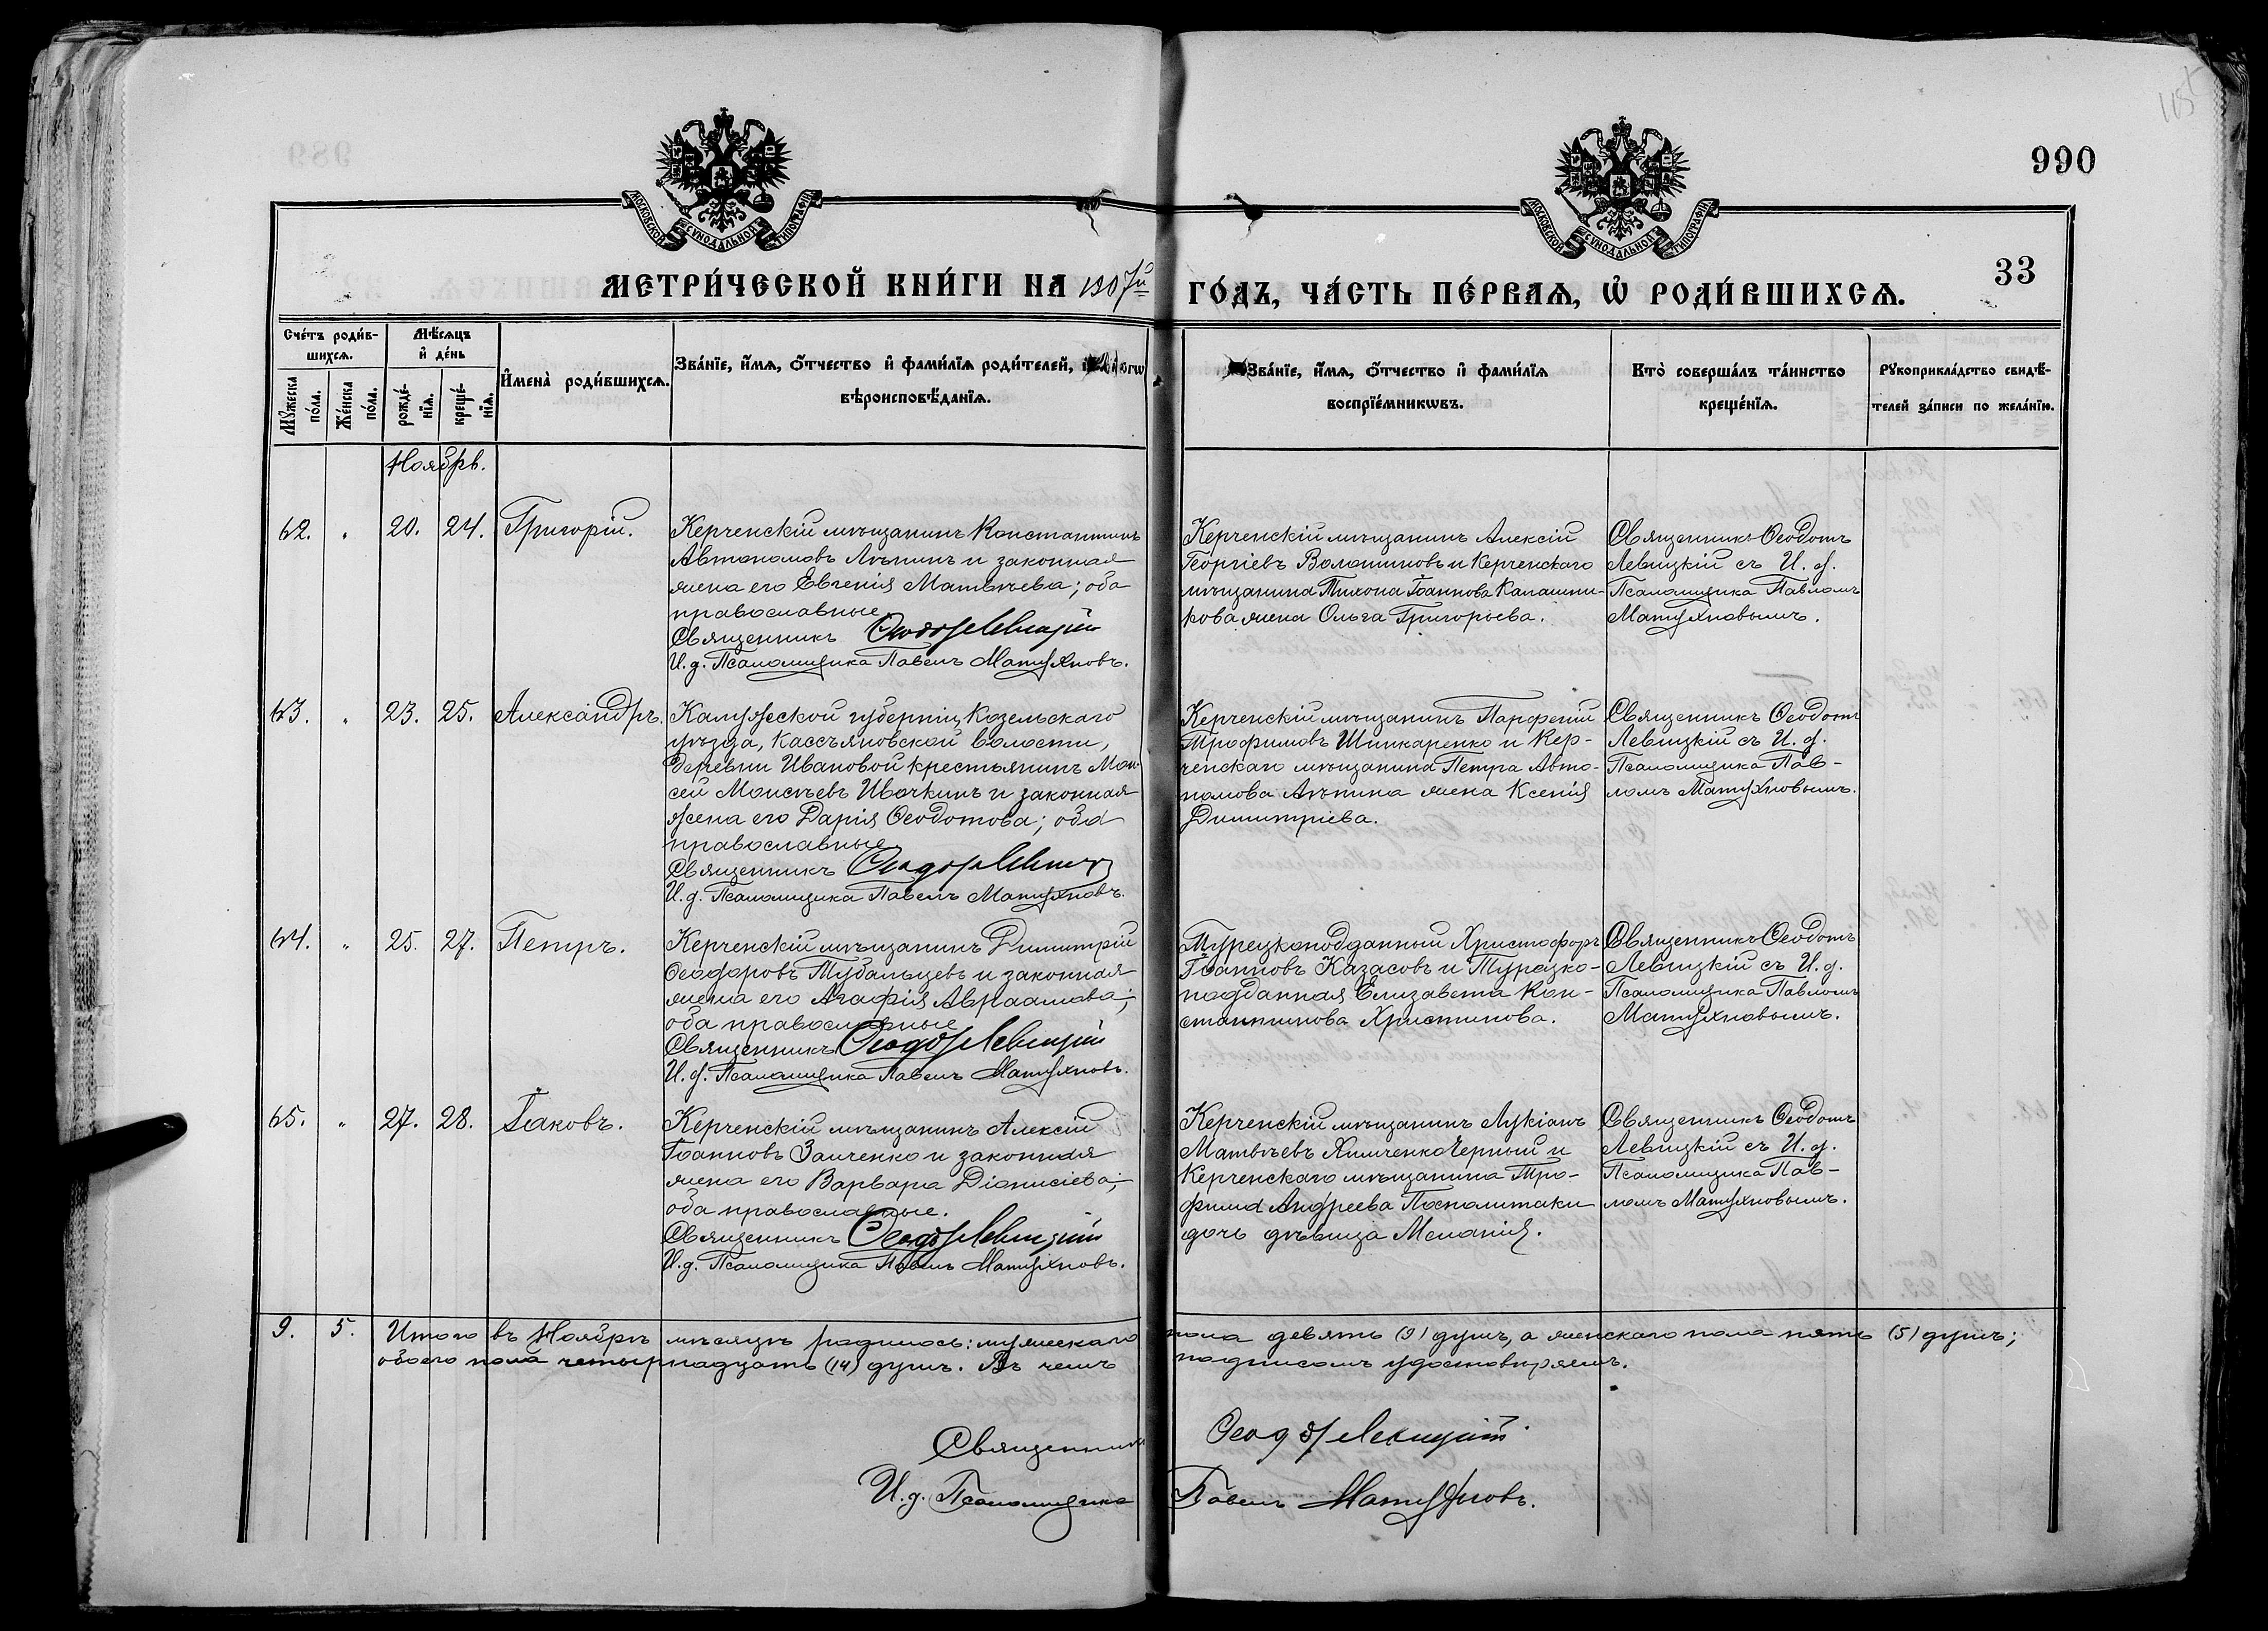 990
33
МОСКОВСКОЙ СѴНОДАЛЬНОЙ ТИПОГРАФІИ
МОСКОВСКОЙ СѴНОДАЛЬНОЙ ТИПОГРАФІИ
МЕТРИ́ЧЕСКОЙ КНИ́ГИ НА 1907й ГО́ДЪ, ЧА́СТЬ ПЕ́РВАѦ, Ѡ҆ РОДИ́ВШИХСѦ.
Сче́тъ роди́в-
шихсѧ.
Мꙋжеска
по́ла.
Же́нска
по́ла.
Мѣ́сѧцъ
и҆ де́нь
рожде́-
нїѧ.
креще́-
нїѧ.
И҆мена̀ роди́вшихсѧ.
Зва́нїе, и҆́мѧ, ѻ҆́тчество и҆ фами́лїѧ роди́телей,
вѣроисповѣ́данїѧ.
Зва́нїе, и҆́мѧ, ѻ҆́тчество и҆ фами́лїѧ
воспрїе́мникѡвъ.
Кто̀ соверша́лъ та́инство
креще́нїѧ.
Рꙋкоприкла́дство свидѣ́-
телей за́писи по жела́нїю.
Ноябрь.
62. " 20. 24. Григорій.
Керченскій мѣщанинъ Константинъ
Автономовъ Лѣпинъ и законная
жена его Евгенія Матвѣева; оба
православные
Священникъ Ѳеодотъ Левицкій
И. д. Псаломщика Павелъ Матушновъ.
Керченскій мѣщанинъ Алексій
Георгіевъ Волошиновъ и Керченскаго
мѣщанина Тихона Іоаннова Калашни-
кова жена Ольга Григорьева.
Священникъ Ѳеодотъ
Левицкій съ И. д.
Псаломщика Павломъ
Матушновымъ.
63. " 23. 25. Александръ.
Калужской губерніи, Козельскаго
уѣзда, Кассьяновской волости,
деревни Ивановой крестьянинъ Мои-
сей Моисѣевъ Ивочкинъ и законная
жена его Дарія Ѳеодотова; оба
православные
Священникъ Ѳеодотъ Левицкій
И. д. Псаломщика Павелъ Матушновъ.
Керченскій мѣщанинъ Парфеній
Трофимовъ Шинкаренко и Кер-
ченскаго мѣщанина Петра Авто-
номова Лѣпина жена Ксенія
Димитріева.
Священникъ Ѳеодотъ
Левицкій съ И. д.
Псаломщика Пав-
ломъ Матушновымъ.
64. " 25. 27. Петръ.
Керченскій мѣщанинъ Димитрій
Ѳеодоровъ Тубальцевъ и законная
жена его Агафія Авраамова;
оба православные
Священникъ Ѳеодотъ Левицкій
И. д. Псаломщика Павелъ Матушновъ.
Турецкоподданный Христофоръ
Іоанновъ Казасовъ и Турецко-
подданная Елизавета Кон-
стантинова Христинова.
Священникъ Ѳеодотъ
Левицкій съ И. д.
Псаломщика Павломъ
Матушновымъ.
65. " 27. 28. Іаковъ.
Керченскій мѣщанинъ Алексій
Іоанновъ Заиченко и законная
жена его Варвара Діонисіева;
оба православные.
Священникъ Ѳеодотъ Левицкій
И. д. Псаломщика Павелъ Матушновъ.
Керченскій мѣщанинъ Лукіанъ
Матвѣевъ Химченко Черный и
Керченскаго мѣщанина Тро-
фима Андреева Посполитаки
дочь дѣвица Меланія.
Священникъ Ѳеодотъ
Левицкій съ И. д.
Псаломщика Пав-
ломъ Матушновымъ.
9. 5. Итого въ Ноябрѣ мѣсяцѣ родилось: мужескаго пола девять (9) душъ, а женскаго пола пять (5) душъ;
обоего пола четырнадцать (14) душъ. Въ чемъ подписомъ удостовѣряемъ.
Священникъ Ѳеодотъ Левицкій
И. д. Псаломщика Павелъ Матушновъ.